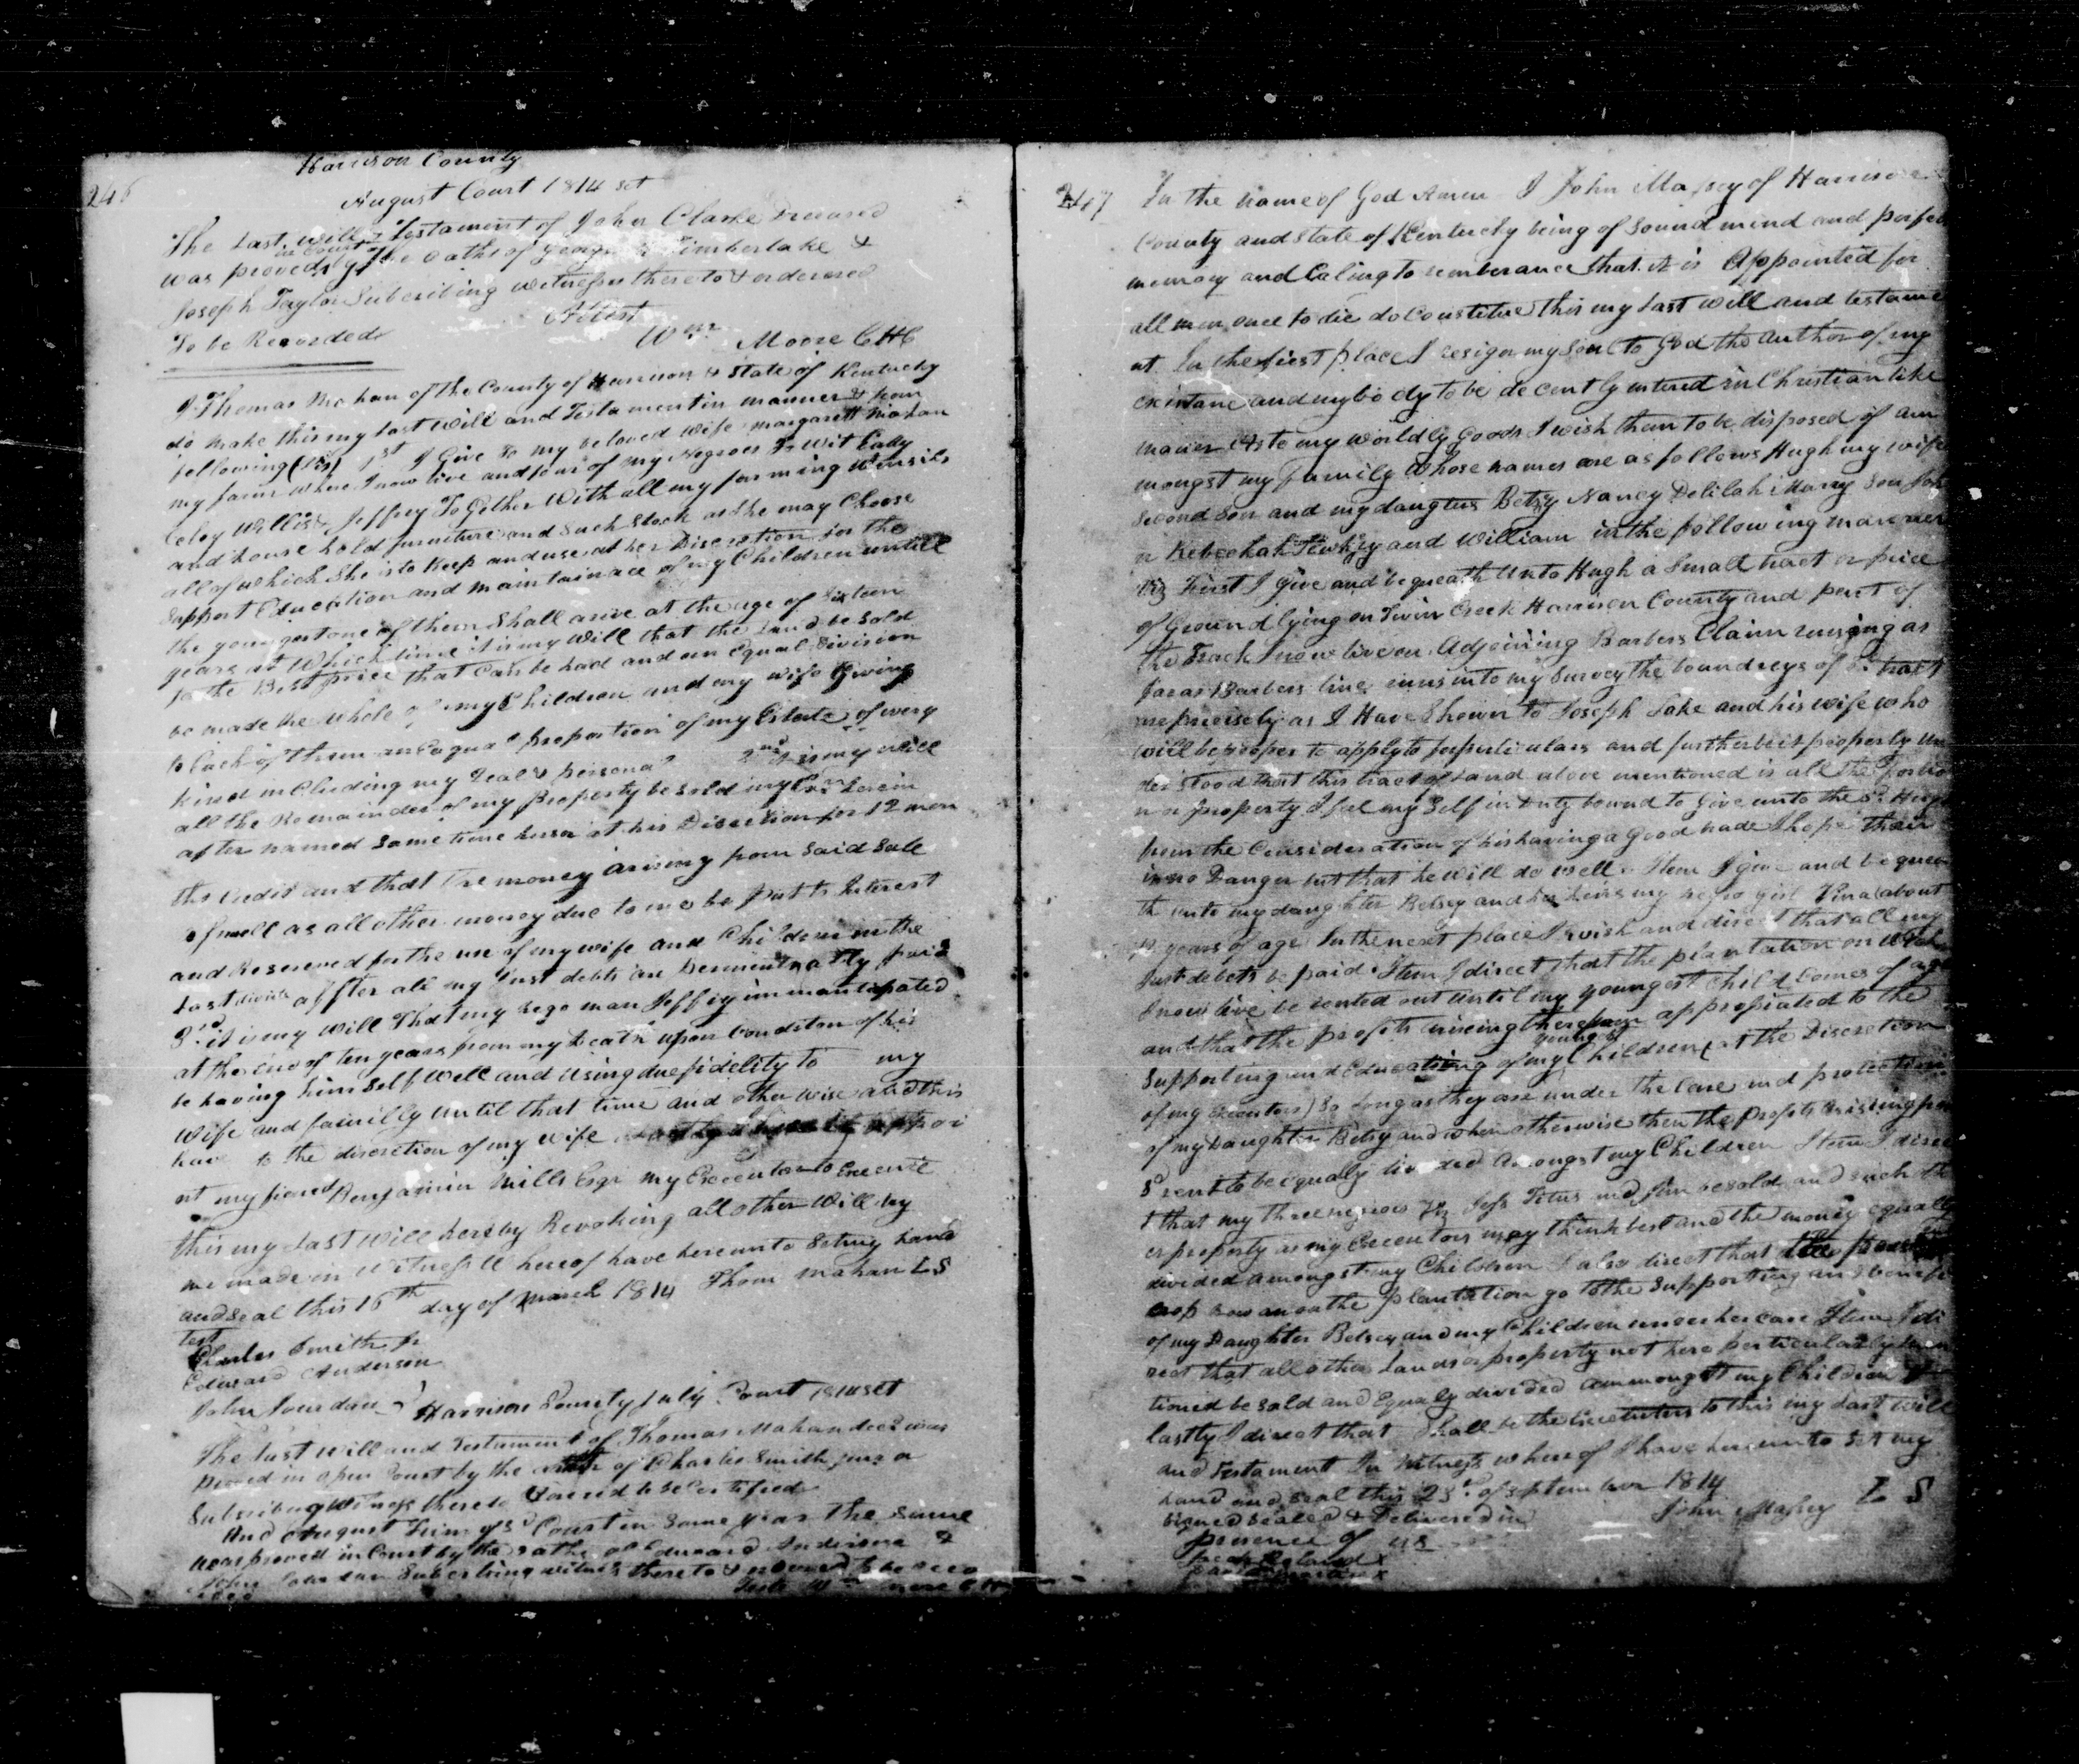 246
Harrison County
August Court 1814 Set
The Last will & Testament of John Clarke Deceased
was proved in Court by the oaths of George Timberlake &
Joseph Taylor Subscribing witnesses thereto & ordered
To be Recorded
Attest
Wm Moore CHC
I Thomas Mahan of the County of Harrison & State of Kentucky
do make this my last will and Testament in manner & form
following 1st I Give to my beloved wife Margarett Mahan
my farm where I now live and four of my Negroes To Wit
Willis & Jeffrey ToGether With all my farming utensils
and house hold furniture and such stock as she may Choose
all of which She is to Keep and use at her Discretion for the
Support Education and maintainace of my Children untill
the youngest one of them Shall arive at the age of Sixteen
years at Which time it is my Will that the Land be Sold
for the Best price that can be had and an equal division
be made the whole of my Children and my wife Giving
to Each of them an Eaqual proportion of my Estate of every
kind including my Real & personal 2nd it is my will
all the Remainder of my property be sold my Exr herein
after named some time at his Discretion for 12 mon
ths Credit and that the money arising from said Sale
as well as all other money due to me be put to Interest
and Reserved for the use of my wife and Children in the
Last divide affter all my Just debts are paid
3rd it is my will That my nego man Jeffry immantepated
at the end of ten years from my Death upon Condition of his
be having him Self Well and Using due fidelity to my
Wife and familly until that time and other wise
to the discretion of my wife appoi
nt my friend Benjamin Mills Esqr my Executor to Execute
this my Last Will hereby Revoking all other Will by
me made in Witness Whereof have hereunto Set my hand
and Seal this 16th day of March 1814 Thom Mahan LS
Test
Charles Smith Jr
Edward Anderson
John Jourdan
Harrison County July Court 1814 Set
The last will and Testament of Thomas Mahan decd was
proved in open Court by the oath of Charles Smith junr a
Subscribing Witness thereto & ordered to be Certified
And August Term of sd Court in Same year the same
was proved in Court by the oaths of Edward Anderson &
John Jourdan Subscribing witness thereto & ordered to be reco
247
In the name of God Amen I John Massey of Harrison
County and State of Kentucky being of Sound mind and perfect
memory and Caling to rembrance that it is Appointed for
all men once to die do Constitue this my Last will and testame
nt In the first place I resign my Soul to God the author of my
existance and my body to be decently intered in Christian like
maner As to my worldly Goods I wish them to be disposed of am
mongst my family whose names are as follows Hugh my wife
Second Son and my daugters Betsy Nancy Delilah Marry Son Joh
n Rebeckah and William in the following manner
Viz First I give and bequeath Unto Hugh a Small tract or piece
of Ground lying on Twin Creek Harrison County and part of
the Track I now live on Adjoining Barbers Claim runing as
far as Barbers line runs into my Survey the boundreys of
precisely as I Have Shown to Joseph Lake and his wife who
will be proper to apply to for perticulars and further be it properly un
der stood that this tract of Land above mentioned is all the portio
n or property I feel my Self in duty bound to Give unto the sd Hugh
from the Consideration of his having a Good trade I hope thair
is no Danger but that he will do well Item I give and bequea
th unto my daughter Betsey and her heirs my negro girl Vina about
years of age In the next place I wish and direct that all my
Just debets be paid Item I direct that the plantation on which
I now live be rented out until my youngest Child Comes of age
and that the profets ariseing therefrom appropiated to the
Supporting and Educating of my younger Children (at the Discretion
of my executors) So Long as they are under the Care and protection
of my Daughter Betsy and when otherwise then the profets arising from
sd rent to be equaly divided Amongst my Children Item I direc
t that my three negroes Viz Jess Titus and Jim be sold and such oth
er property as my Executors may think best and the money equally
divided amongst my Children I also direct that the
crop now on the plantation go to the Supporting and benefi
of my Daughter Betsey and my Children under her care Item I di
rect that all other Lands or property not here perticularly men
tioned be sold and Equaly divided ammongst my Children
lastly I direct that Shall be the Executors to this my Last will
and Testament In Witness whereof I have hereunto Set my
hand and Seal this 23d of September 1814
Signed Sealed & Delivered in
John Massey L S
presence of us